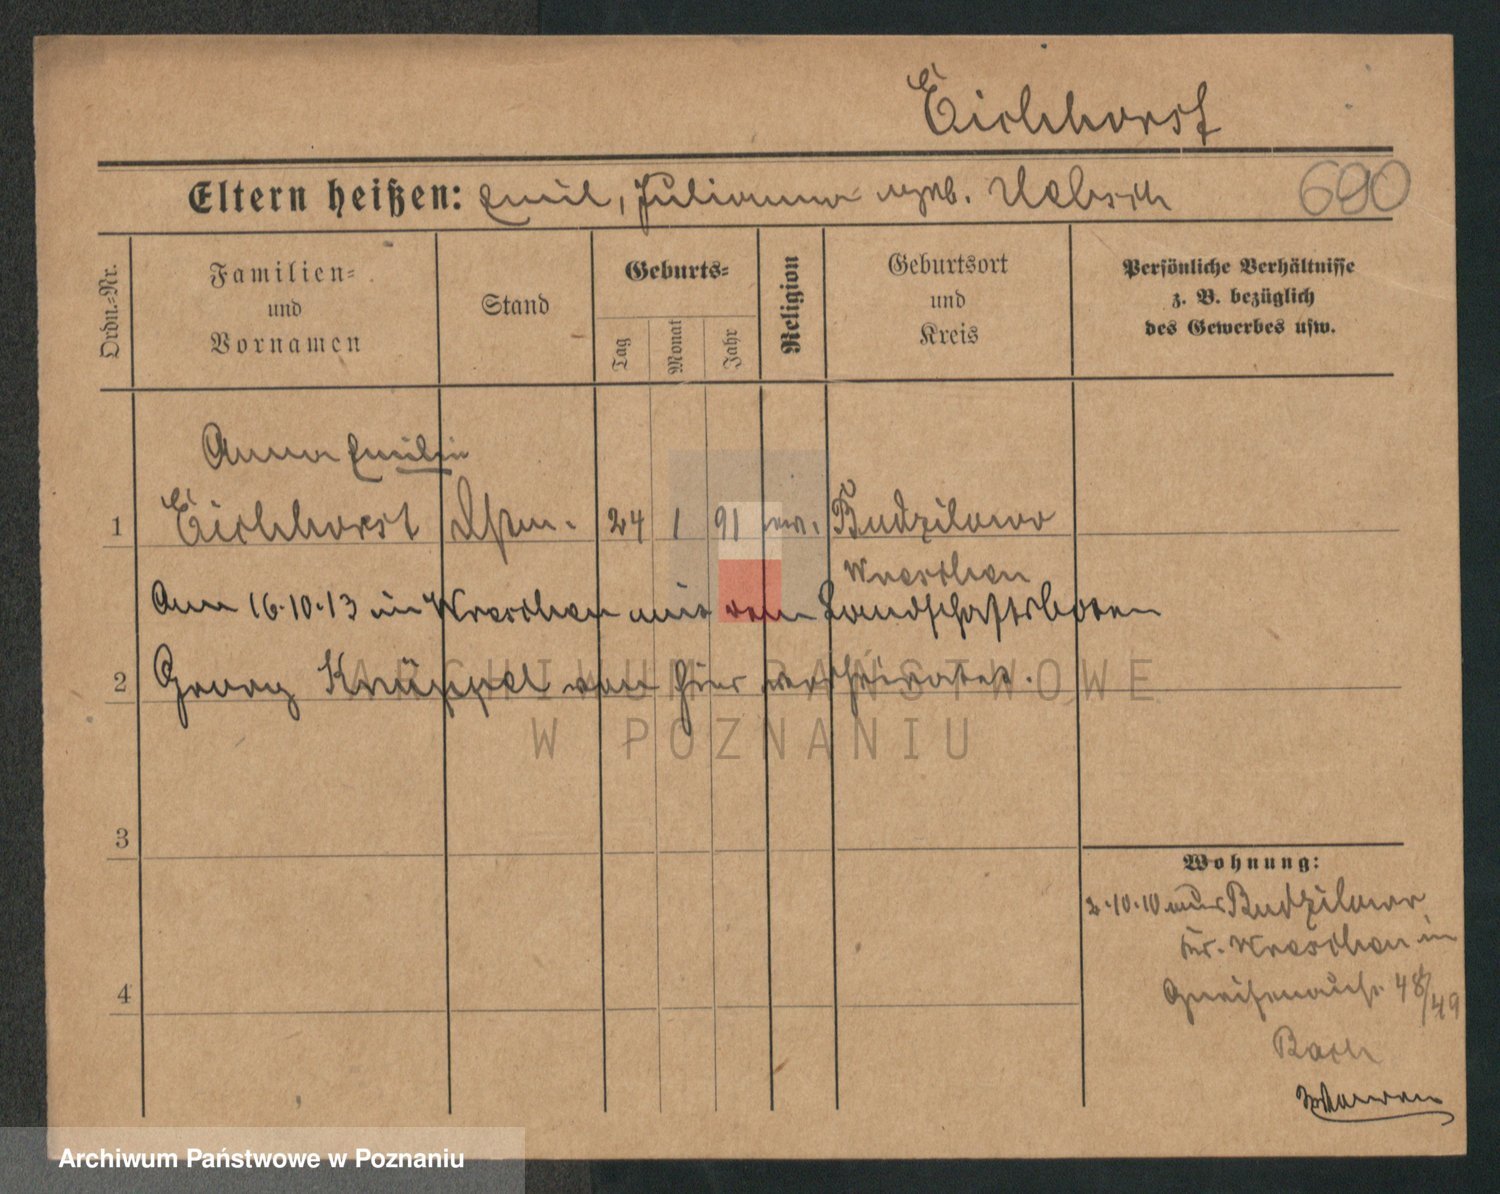 Eichhorst
Eltern heißen: Emil, Julianna geb. Uebsch
690
Ordn.-Nr.
Familien-
und
Vornamen
Stand
Geburts-
Tag
Monat
Jahr
Religion
Geburtsort
und
Kreis
Persönliche Verhältnisse
z. B. bezüglich
des Gewerbes usw.
Anna Emilie
1 Eichhorst 24 1 91 ev. Budzilowo
Wreschen
Am 16.10.13 in Wreschen mit dem Landschaftsboten
2 Georg Knüppel von hier verheiratet.
3
4
Wohnung:
2.10.10 aus Budzilowo
Kr. Wreschen in
Gneisenaustr. 48/49
Bach
ARCHIWUM PAŃSTWOWE
W POZNANIU
Archiwum Państwowe w Poznaniu